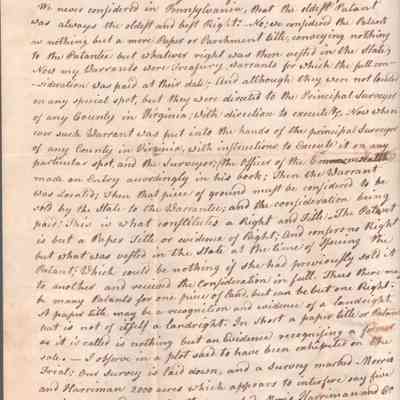 We never considered in Pennsylvania, that the oldest Patent
was always the oldest and best Right. No; we considered the Patent
as nothing but a mere Paper or Parchment title, conveying nothing
to the Patentee but whatever right was then vested in the State;
Now my Warrants were Treasury Warrants for which the full con-
-sideration was paid at their date; And although they were not located
on any special spot, but they were directed to the Principal Surveyor
of any County in Virginia; with direction to execute &c. Now when
ever such Warrant was put into the hands of the principal Surveyor
of any County in Virginia, with instructions to Execute it on any
particular spot, and the Surveyor, (the Officer of the Commonwealth
made an Entry accordingly in his book; Then the Warrant
was Located; Then that piece of ground must be considered to be
sold by the State to the Warrantee; and the consideration being
paid; This is what constitutes a Right and Title. The Patent
is but a Paper Title or evidence of Right; And confers no Right
but what was vested in the State at the time of Issuing the
Patent; Which could be nothing if she had previously sold it
to another and received the Consideration in full. Thus there may
be many Patents for one piece of land, but can be but one Right.
A paper title may be a recognition and evidence of a landright,
but is not of itself a landright. In short a paper title or Patent
as it is called is nothing but an Evidence recognising a former
sale. — I observe in a plot said to have been exhibited on the
Trial; Our Survey is laid down, and a Survey marked Morris
and Harriman 2000 acres which appears to interfere say five
Morris Harriman and Co